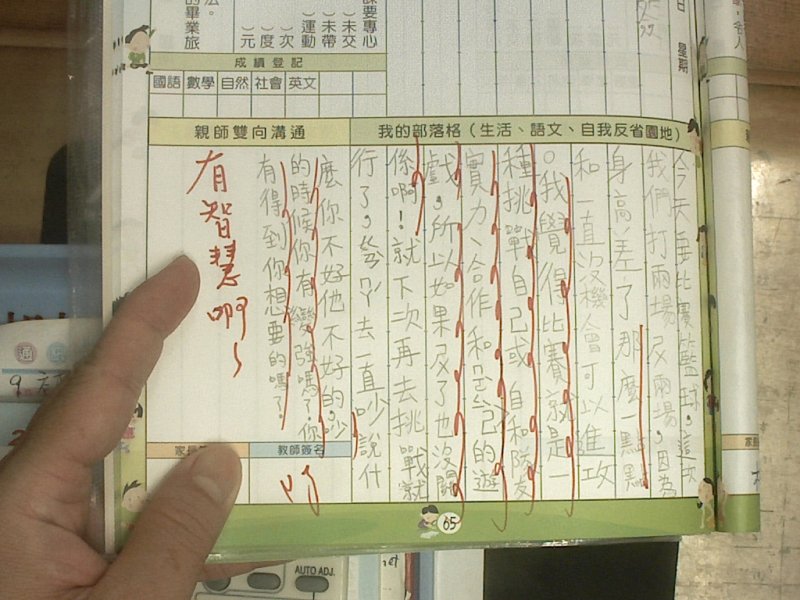 課要專心
(　)未交
(　)未帶
(　)運動
(　)次
(　)度
(　)元
法。
的畢業旅
日 星期
成績登記
國語 數學 自然 社會 英文
親師雙向溝通
我的部落格(生活、語文、自我反省園地)
今天要比賽籃球,這次
我們打兩場 兩場,因為
身高差了那麼一點點
和一直沒機會可以進攻
。我覺得比賽就是一
種挑戰自己或自和隊友
實力、合作和 的遊
戲,所以如果 了也沒關
係啊!就下次再去挑戰就
行了,為ㄕㄚ去一直吵說什
麼你不好他不好的,吵
的時候你有變強嗎?你
有得到你想要的嗎?
有智慧啊~
教師簽名
65
AUTO ADJ.